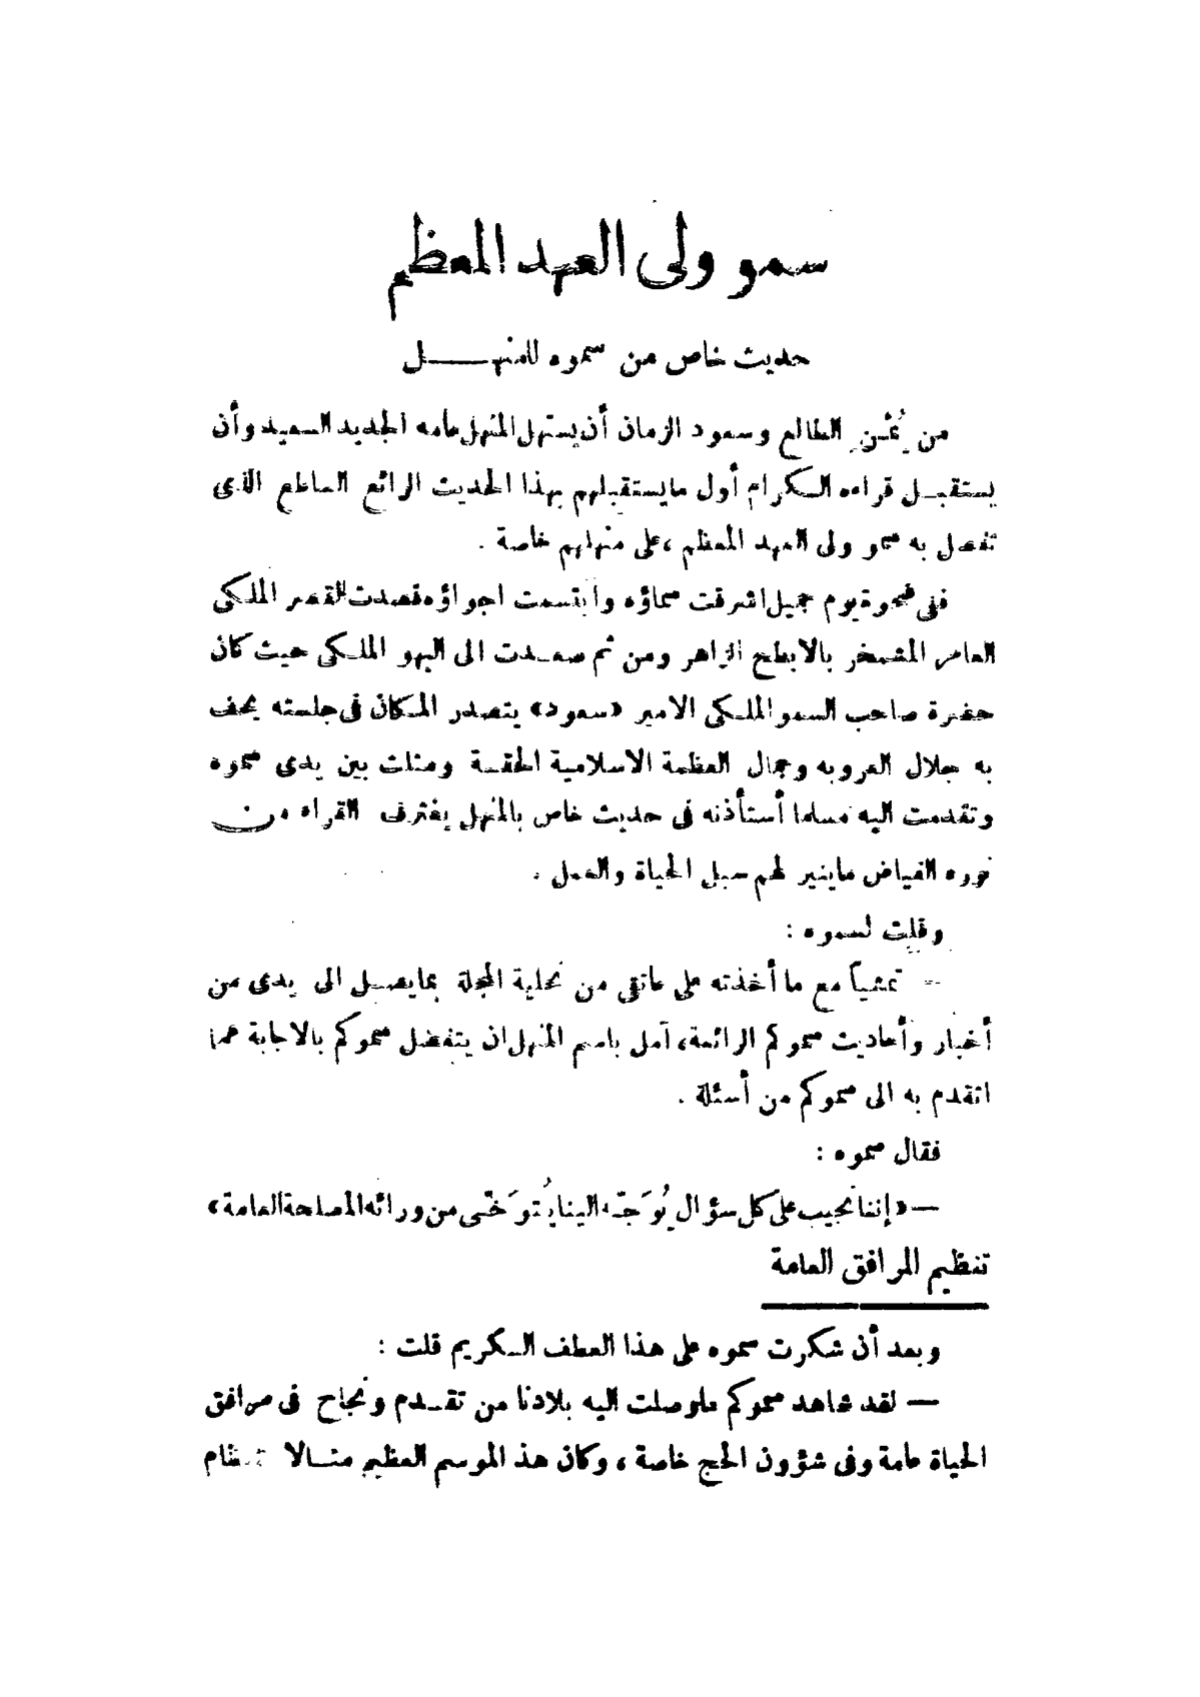 سمو ولى العهد المعظم
حديث خاص من سموه للمنهــــل
من يُمْن الطالع وسعود الزمان أن يستهل المنهل عامه الجديد السعيد وأن
يستقبـل قراءه الـكرام أول مايستقبلهم بهذا الحديث الرائع الساطع الذى
تفضل به سمو ولى العهد المعظم ،على منهلهم خاصة .
ففى ضحوة يوم جميل اشرقت سماؤه وابتسمت اجواؤه قصدت القصر الملـكى
العامر المشمخر بالابطح الزاهر ومن ثم صعـدت الى البهو الملـكى حيث كان
حضرة صاحب السمو الملـكى الامير «سعود» يتصدر المـكان فى جلسته يحف
به جلال العروبه وجمال العظمة الاسلامية الحقـة ومثلت بين يدى سموه
وتقدمت اليه مسلما أستأذنه فى حديث خاص بالمنهل يغترف القراء من
نوره الفياض ماينير لهم سبل الحياة والعمل .
وقلت لسموه :
— تمشياً مع ما أخذته على عاتقى من تحلية المجلة بمايصـل الى يدى من
أخبار وأحاديث سموكم الرائعة، آمل باسم المنهل ان يتفضل سموكم بالاجابة عما
اتقدم به الى سموكم من أسئلة .
فقال سموه :
— «إننا نجيب على كل سؤال يُوَجَّه الينا يُتوَخَّى من ورائه المصلحة العامة»
تنظيم المرافق العامة
وبعد أن شكرت سموه على هذا العطف الـكريم قلت :
— لقد شاهد سموكم ماوصلت اليه بلادنا من تقـدم ونجاح فى مرافق
الحياة عامة وفى شؤون الحج خاصة ، وكان هذ الموسم العظيم مثـالا